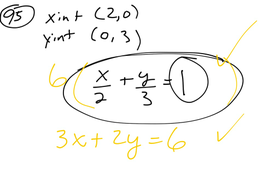 95 xint (2,0)
yint (0,3)
6(x/2 + y/3 = 1)
3x + 2y = 6 ✓